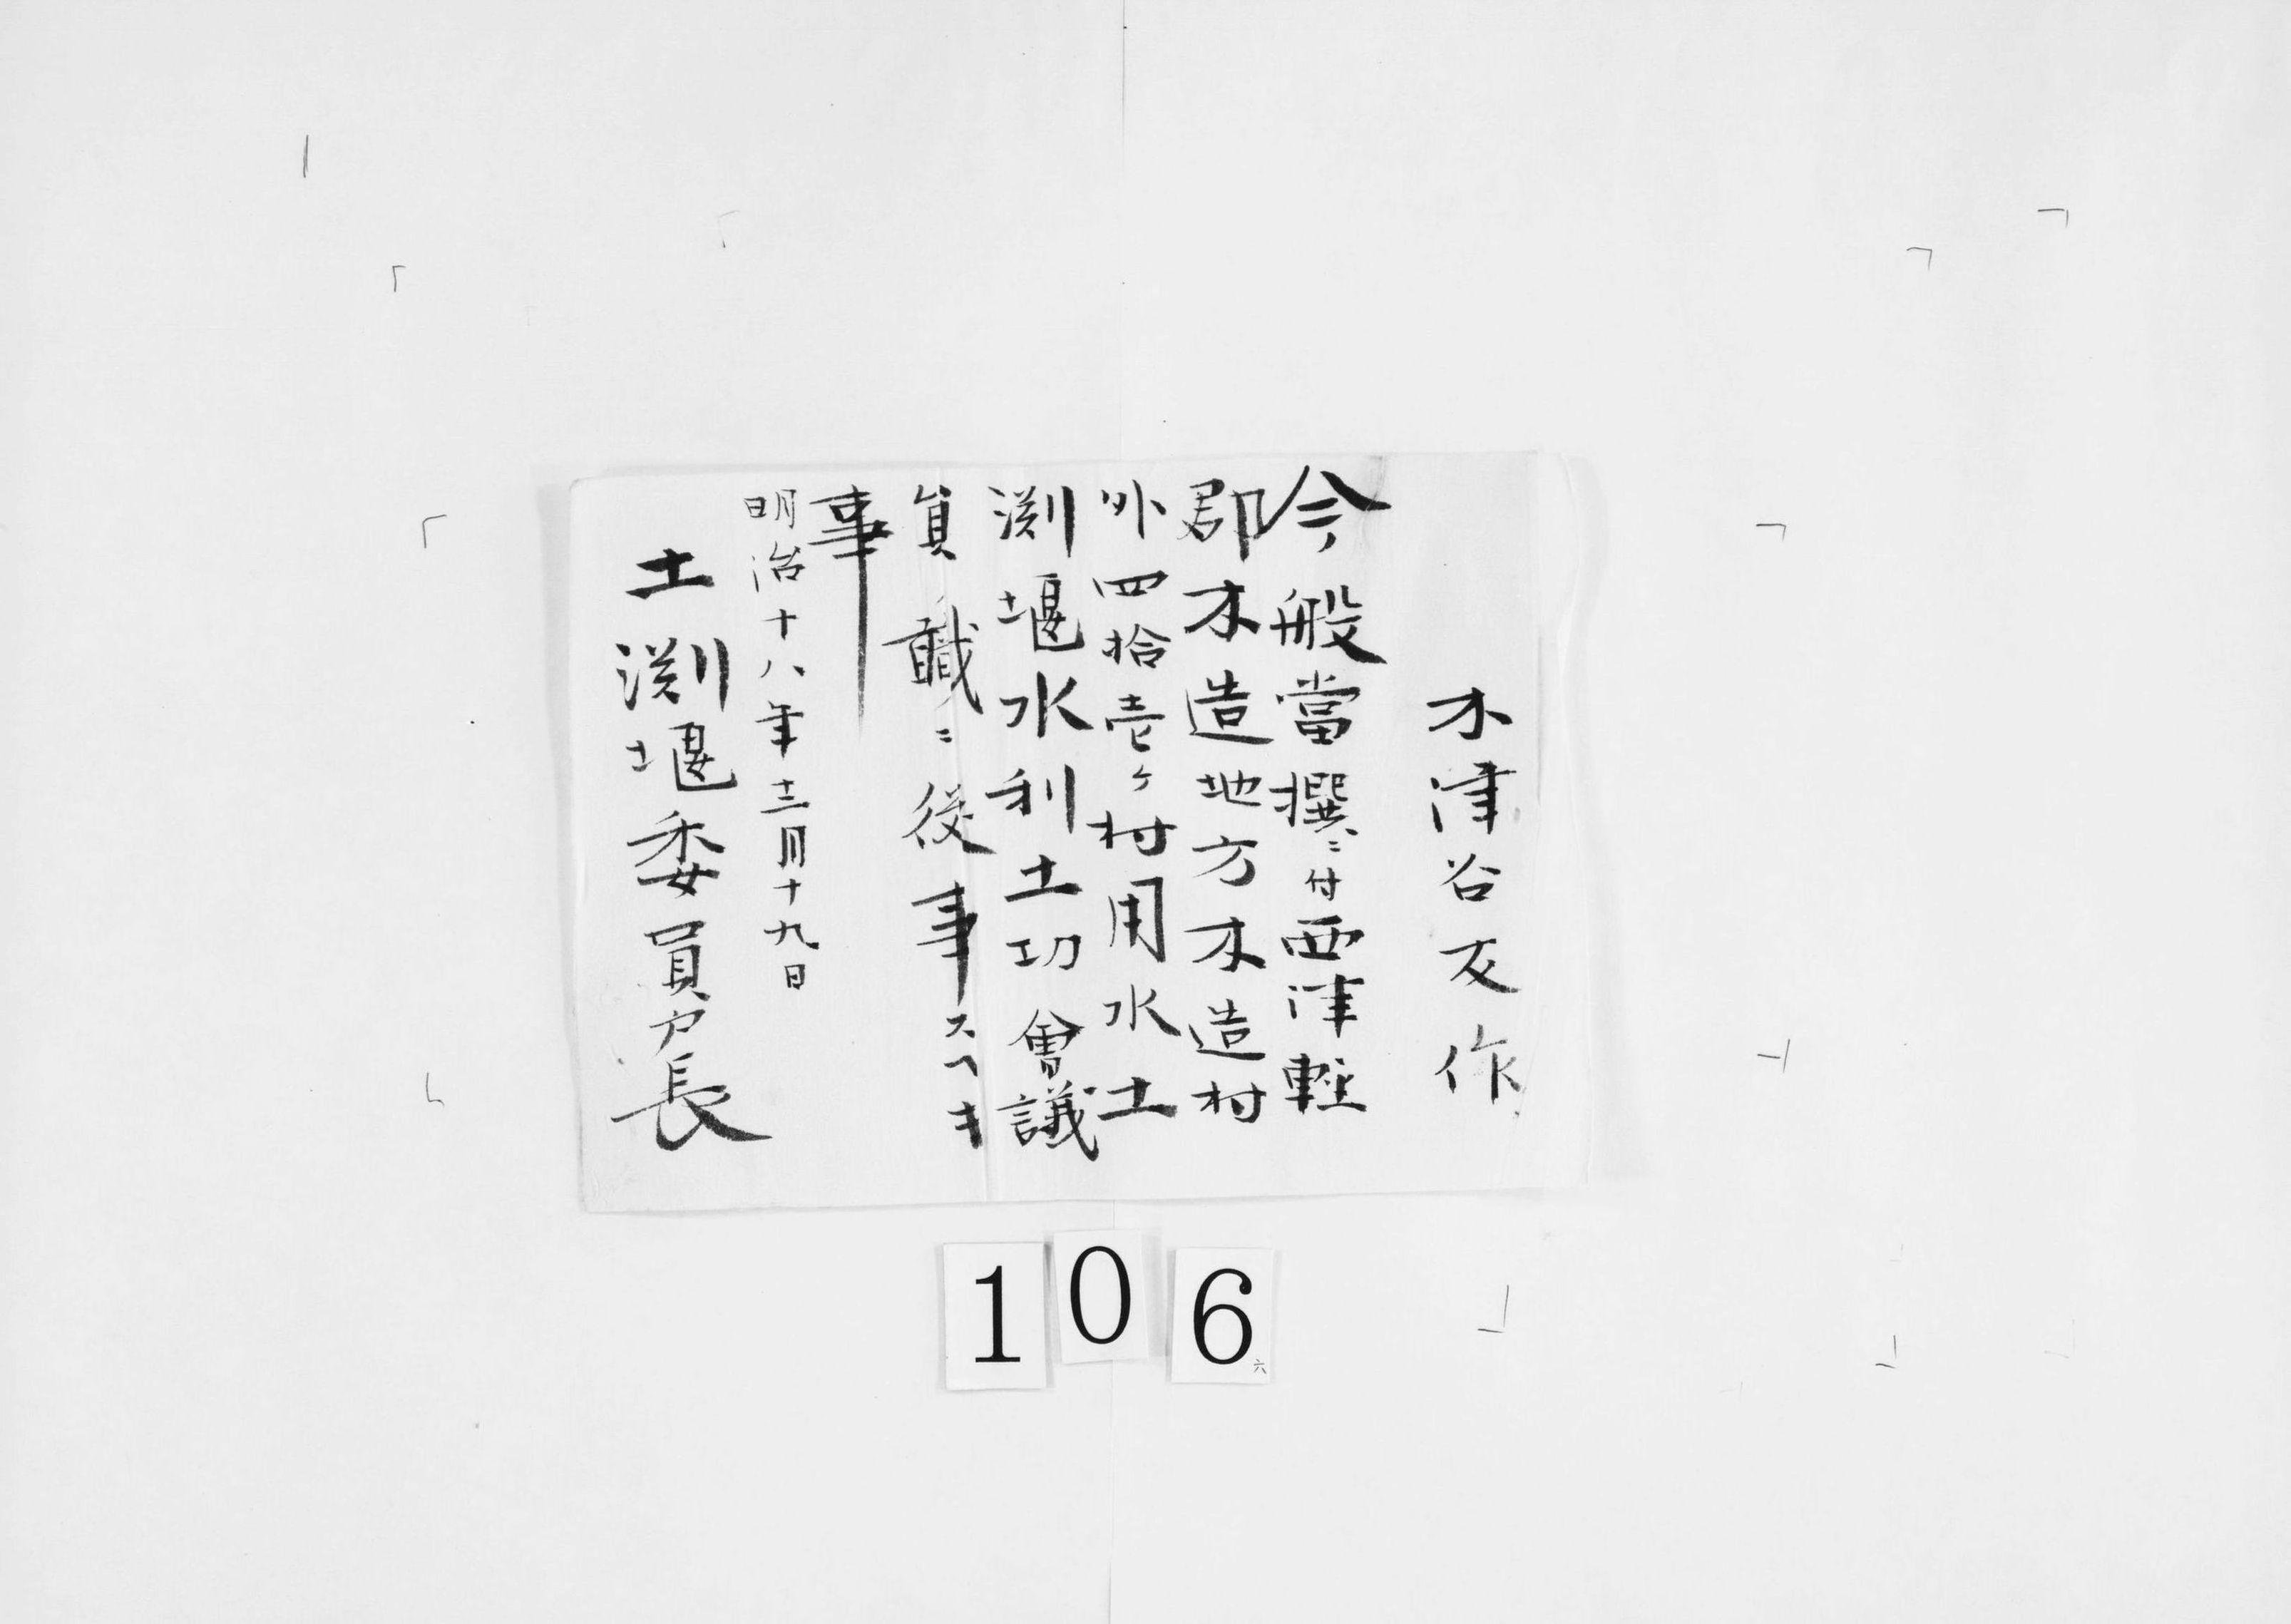 木津谷友作
今般當撰ニ付西津軽
郡木造地方木造村
外四拾壱ヶ村用水土
渕堰水利土功會議
員職ニ従事スヘキ
事
明治十八年十二月十九日
土渕堰委員戸長
106
六